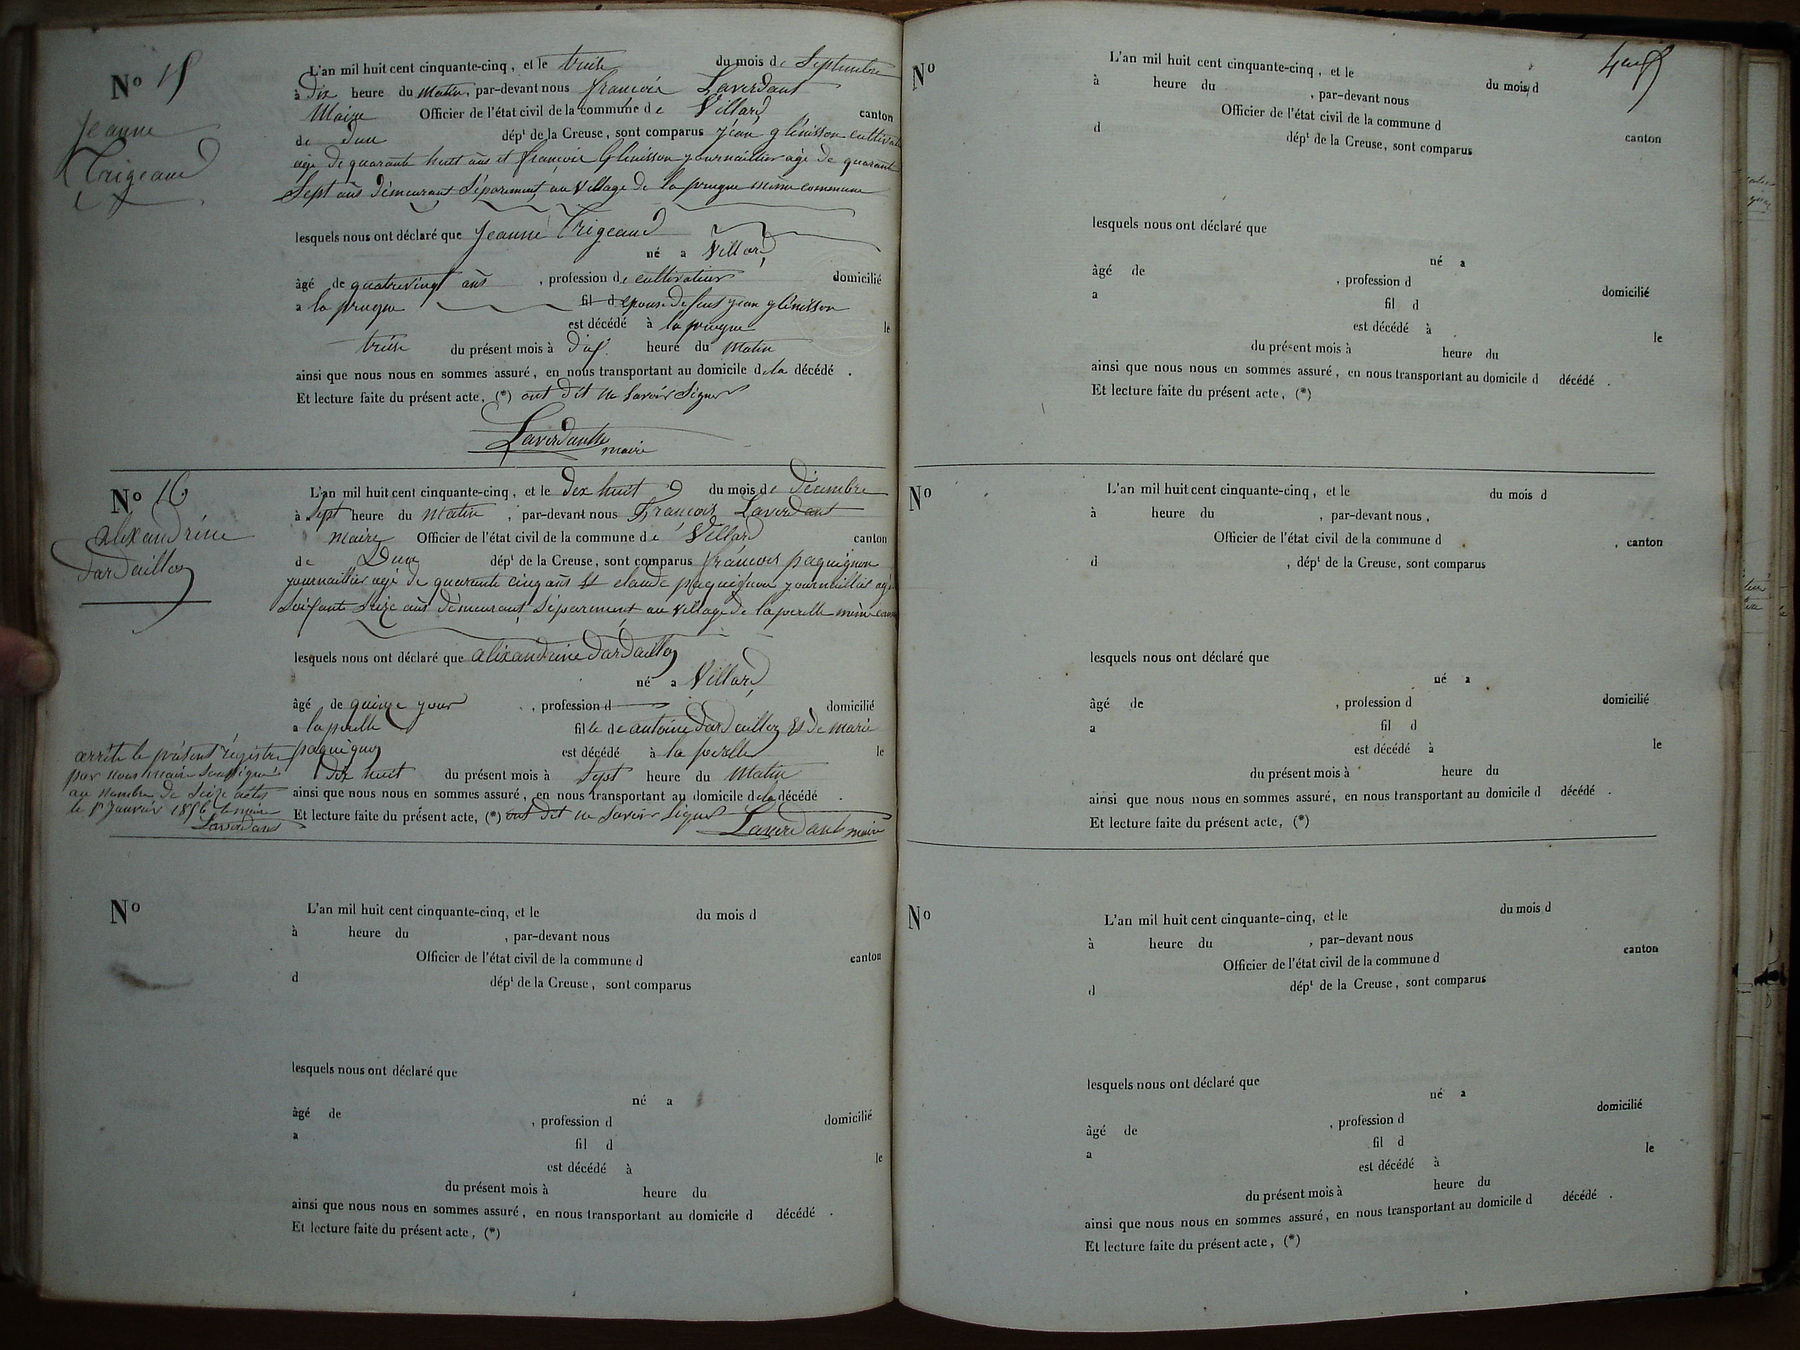 No 15
Jeanne
Trigeaud
L'an mil huit cent cinquante-cinq, et le treize du mois de Septembre
à dix heure du Matin, par-devant nous françois Laverdant
Maire Officier de l'état civil de la commune de Villard canton
de dun dépt de la Creuse, sont comparus jean glénisson cultivateur
agé de quarante huit ans et françois Glénisson journaillier agé de quarante
Sept ans démeurant Séparement au Village de la prugne même commune
lesquels nous ont déclaré que Jeanne Trigeaud
né a Villard
âgé de quatrevingt ans, profession de cultivateur domicilié
a la prugne fil d épouse de feus jean glénisson
est décédé à la prugne le
treize du présent mois à heure du Matin
ainsi que nous nous en sommes assuré, en nous transportant au domicile de la décédé .
Et lecture faite du présent acte, (*) ont dit ne Savoir Signer
Laverdant
maire
No 16
alixandrine
dardaillon
L'an mil huit cent cinquante-cinq, et le dix huit du mois de décembre
à Sept heure du Matin, par-devant nous François Laverdant
maire Officier de l'état civil de la commune de Villard canton
de Dun dépt de la Creuse, sont comparus françois paquignon
journaillier agé de quarante cinq ans Et claude paquignon journaillier agé
Soixante Seize ans démeurant Séparement au Village de la perelle même
lesquels nous ont déclaré que alixandrine dardaillon
né a Villard
âgé de quinze jour, profession d domicilié
a la perelle fille de antoine dardaillon Et de marie
paquignon est décédé à la perelle le
Dix huit du présent mois à Sept heure du Matin
ainsi que nous nous en sommes assuré, en nous transportant au domicile de la décédé .
Et lecture faite du présent acte, (*) ont dit ne Savoir Signer Laverdant maire
arrêté le présent régistre
par nous maire Soussigné
au nombre de Seize actes
le 1er Janvier 1856 le maire
Laverdant
No
L'an mil huit cent cinquante-cinq, et le du mois d
à heure du , par-devant nous
Officier de l'état civil de la commune d canton
d dépt de la Creuse, sont comparus
lesquels nous ont déclaré que
né a
âgé de , profession d domicilié
a fil d
est décédé à le
du présent mois à heure du
ainsi que nous nous en sommes assuré, en nous transportant au domicile d décédé .
Et lecture faite du présent acte, (*)
No
L'an mil huit cent cinquante-cinq, et le du mois d
à heure du , par-devant nous
Officier de l'état civil de la commune d
d dépt de la Creuse, sont comparus canton
lesquels nous ont déclaré que
né a
âgé de , profession d domicilié
a fil d
est décédé à le
du présent mois à heure du
ainsi que nous nous en sommes assuré, en nous transportant au domicile d décédé .
Et lecture faite du présent acte, (*)
No
L'an mil huit cent cinquante-cinq, et le du mois d
à heure du , par-devant nous,
Officier de l'état civil de la commune d , canton
d , dépt de la Creuse, sont comparus
lesquels nous ont déclaré que
né a
âgé de , profession d domicilié
a fil d
est décédé à le
du présent mois à heure du
ainsi que nous nous en sommes assuré, en nous transportant au domicile d décédé .
Et lecture faite du présent acte, (*)
No
L'an mil huit cent cinquante-cinq, et le du mois d
à heure du , par-devant nous
Officier de l'état civil de la commune d canton
d dépt de la Creuse, sont comparus
lesquels nous ont déclaré que
né a
âgé de , profession d domicilié
a fil d
est décédé à le
du présent mois à heure du
ainsi que nous nous en sommes assuré, en nous transportant au domicile d décédé .
Et lecture faite du présent acte, (*)